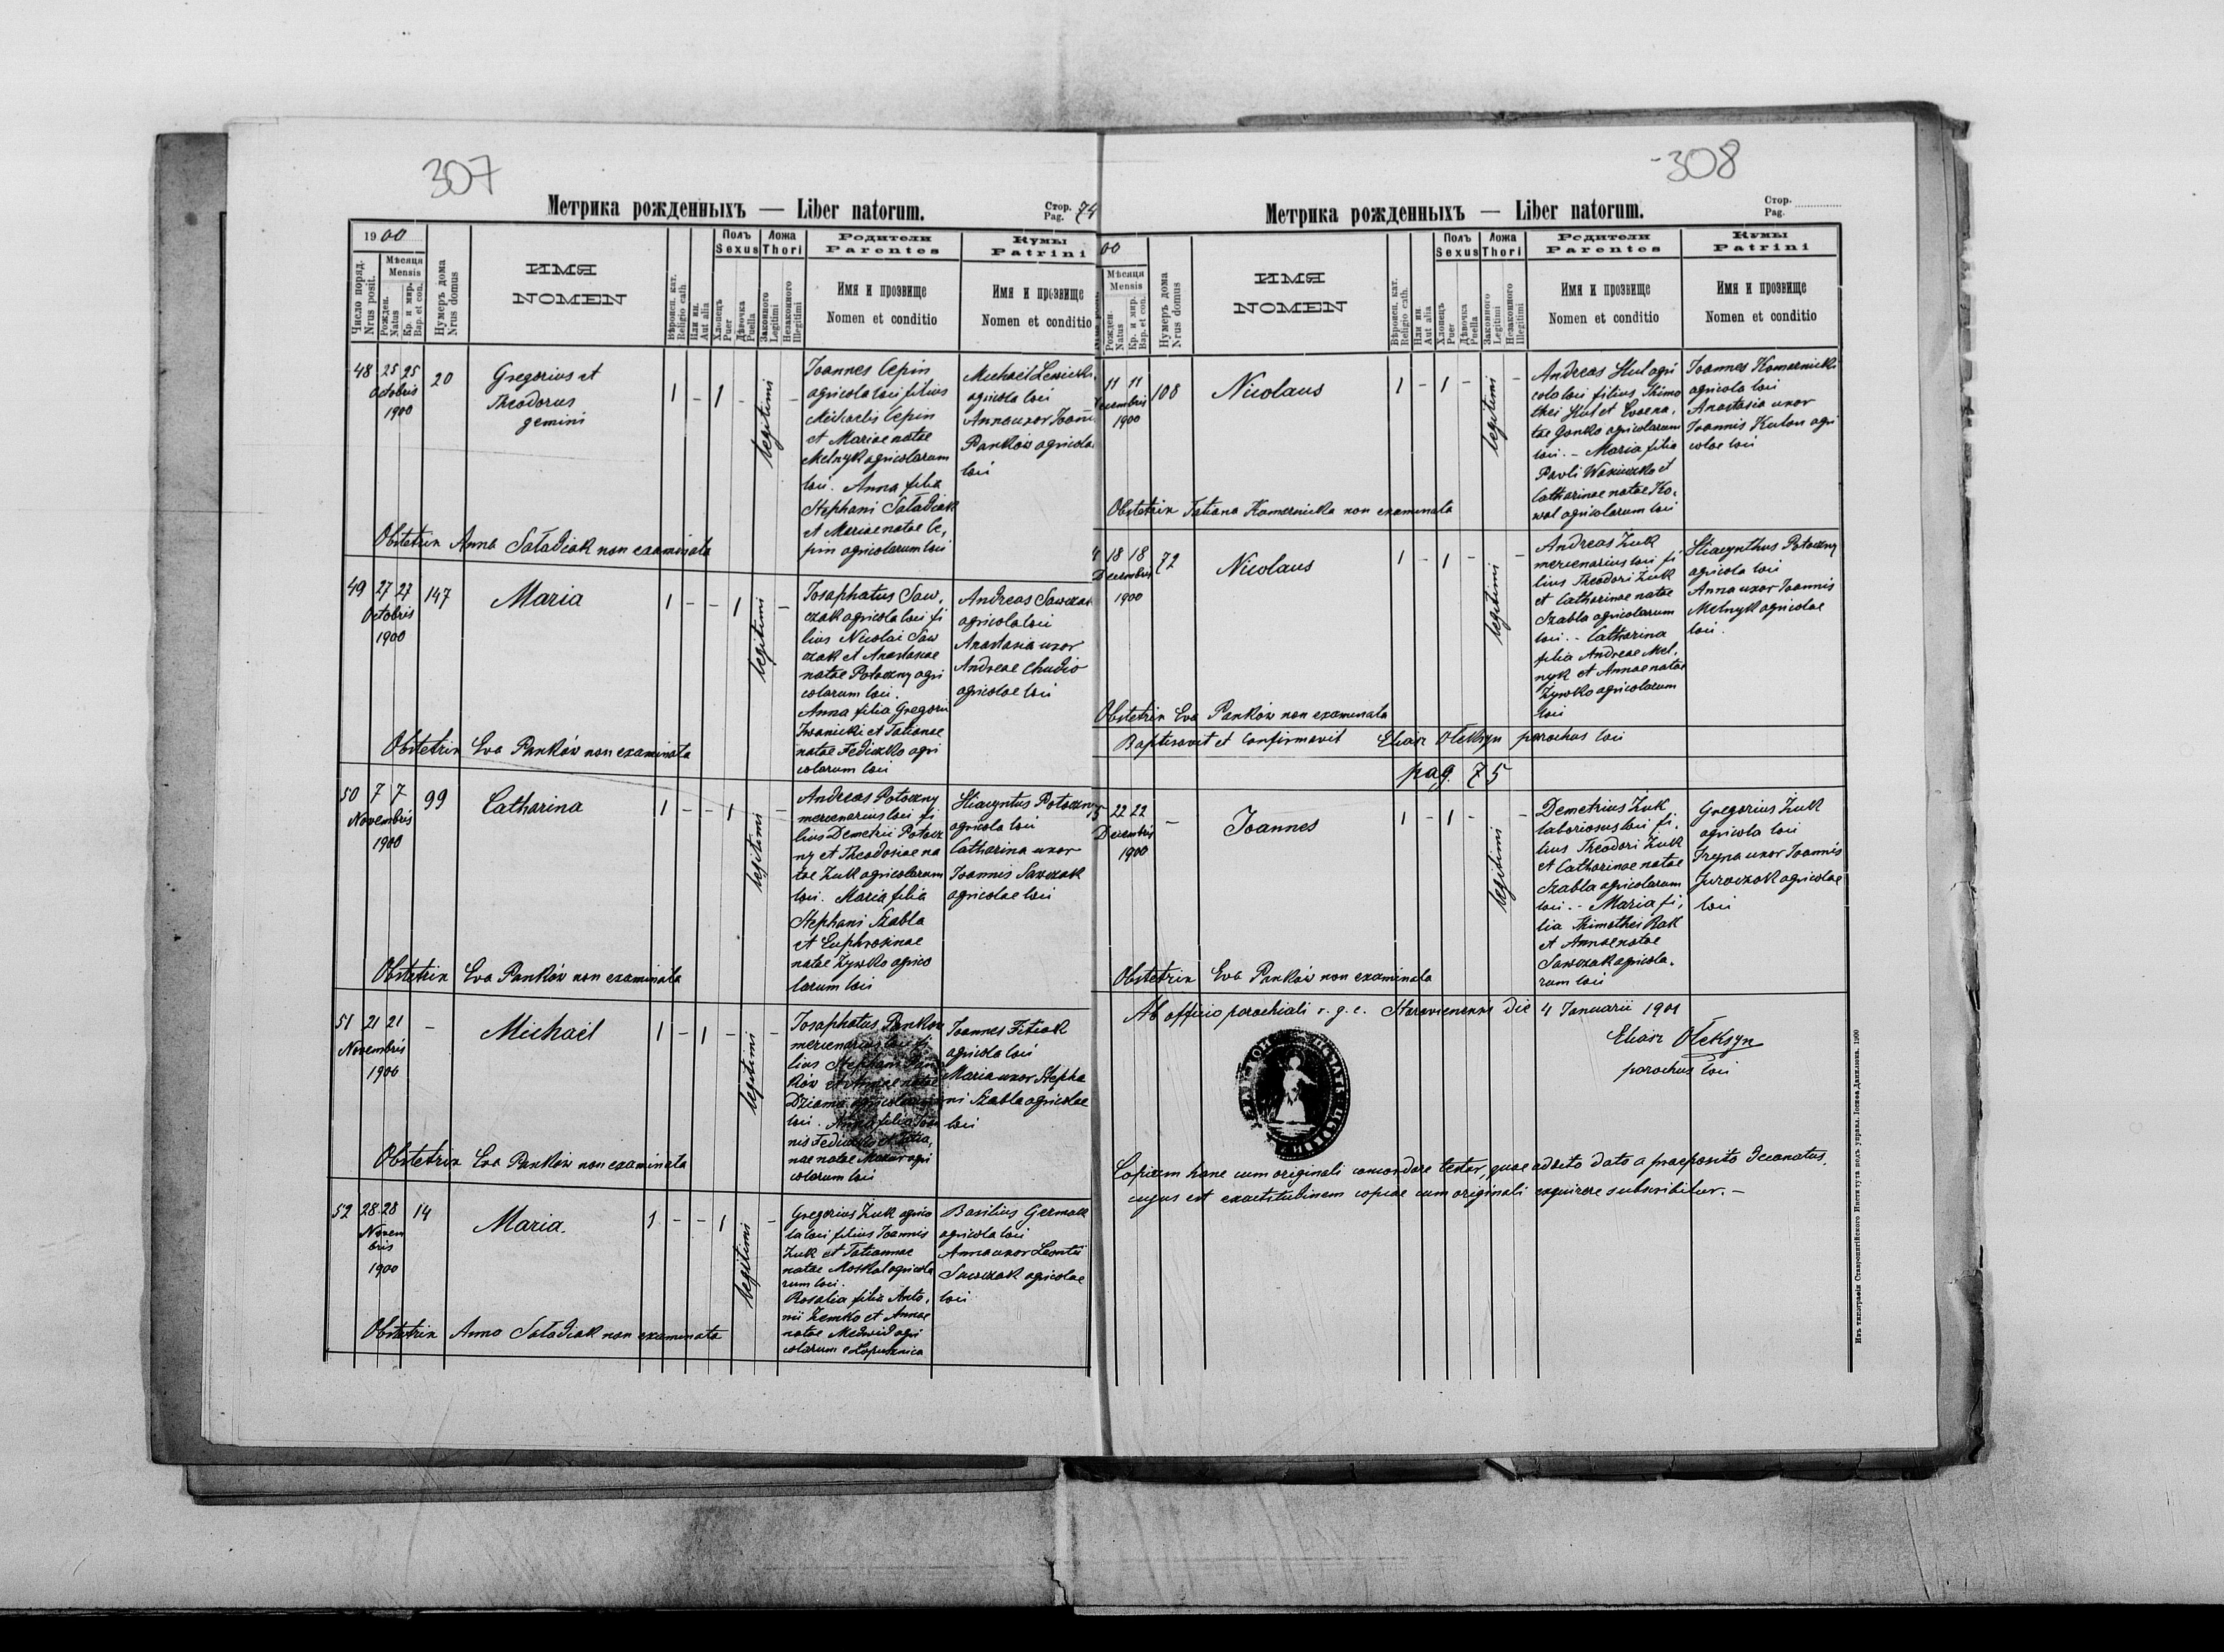 307
Метрика рожденныхъ — Liber natorum.
Стор.
Pag. 74
1900
Число поряд.
Nrus posit.
Мѣсяця
Mensis
Рожден.
Natus
Кр. и мир.
Bap. et con.
Нумеръ дома
Nrus domus
ИМЯ
NOMEN
Вѣроисп. кат.
Religio cath.
Или ин.
Aut alia
Полъ
Sexus
Хлопецъ
Puer
Дѣвочка
Puella
Ложа
Thori
Законного
Legitimi
Незаконного
Illegitimi
Родители
Parentes
Имя и прозвище
Nomen et conditio
Кумы
Patrini
Имя и прозвище
Nomen et conditio
48 25 25 20
Octobris
1900
Gregorius et
Theodorus
gemini
1 - 1 - legitimi -
Joannes Cepin
agricola loci filius
Michaelis Cepin
et Mariae natae
Melnyk agricolarum
loci. Anna filia
Stephani Saładiak
et Mariae natae Ce,
pin agricolarum loci
Michael Lewicki
agricola loci
Anna uxor Joann
Panków agricola
loci
Obstetrix Anna Saładiak non examinata
49 27 27 147
Octobris
1900
Maria
1 - - 1 legitimi -
Josaphatus Saw,
czak agricola loci fi
lius Nicolai Saw
czak et Anastasiae
natae Potoczny agri
colarum loci.
Anna filia Gregorii
Iwanicki et Tatianae
natae Fediczko agri
colarum loci
Andreas Sawczak
agricola loci
Anastasia uxor
Andreae Chudio
agricolae loci
Obstetrix Eva Panków non examinata
50 7 7 99
Novembris
1900
Catharina
1 - - 1 legitimi -
Andreas Potoczny
mercenarius loci fi
lius Demetrii Potocz
ny et Theodosiae na
tae Żuk agricolarum
loci. Maria filia
Stephani Szabla
et Euphrosinae
natae Żywko agrico
larum loci
Hiacyntus Potoczny
agricola loci
Catharina uxor
Joannis Sawczak
agricolae loci
Obstetrix Eva Panków non examinata
51 21 21 -
Novembris
1900
Michael
1 - 1 - legitimi -
Josaphatus Panków
mercenarius loci fi
lius Stephani Pan
ków et Annae natae
Dziama agricolarum
loci. Anna filia Joan
nis Fediczko et Tatia,
nae natae Mazur agri
colarum loci
Joannes Fitiak
agricola loci
Maria uxor Stepha
ni Szabla agricolae
loci
Obstetrix Eva Panków non examinata
52 28 28 14
Novem
bris
1900
Maria.
1 - - 1 legitimi -
Gregorius Żuk agrico
la loci filius Joannis
Żuk et Tatiannae
natae Moskal agricola
rum loci.
Rosalia filia Anto,
nii Zemko et Annae
natae Medwid agri
colarum e Łopusznica
Basilius Germak
agricola loci
Anna uxor Leontii
Sawczak agricolae
loci
Obstetrix Anna Saładiak non examinata
308
Метрика рожденныхъ — Liber natorum.
Стор.
Pag.
00
Мѣсяця
Mensis
Рожден.
Natus
Кр. и мир.
Bap. et con.
Нумеръ дома
Nrus domus
ИМЯ
NOMEN
Вѣроисп. кат.
Religio cath.
Или ин.
Aut alia
Полъ
Sexus
Хлопецъ
Puer
Дѣвочка
Puella
Ложа
Thori
Законного
Legitimi
Незаконного
Illegitimi
Родители
Parentes
Имя и прозвище
Nomen et conditio
Кумы
Patrini
Имя и прозвище
Nomen et conditio
11 11 108
Decembris
1900
Nicolaus
1 - 1 - legitimi -
Andreas Hul agri
cola loci filius Thimo
thei Hul et Evae na,
tae Gonko agricolarum
loci. - Maria filia
Pavli Waxiuczko et
Catharinae natae Ko,
wal agricolarum loci
Joannes Komarnicki
agricola loci
Anastasia uxor
Joannis Kuton agri
colae loci
Obstetrix Tatiana Komernicka non examinata
4 18 18 72
Decembris
1900
Nicolaus
1 - 1 - legitimi -
Andreas Żuk
mercenarius loci fi
lius Theodori Żuk
et Catharinae natae
Szabla agricolarum
loci. - Catharina
filia Andreae Mel,
nyk et Annae natae
Żywko agricolarum
loci
Hiacynthus Potoczny
agricola loci
Anna uxor Joannis
Melnyk agricolae
loci.
Obstetrix Eva Panków non examinata
Baptisavit et Confirmavit Elias Oleksyn parochus loci
pag. 75
5 22 22 -
Decembris
1900
Joannes
1 - 1 - legitimi -
Demetrius Żuk
laboriosus loci fi,
lius Theodori Żuk
et Catharinae natae
Szabla agricolarum
loci. - Maria fi,
lia Thimothei Rak
et Annae natae
Sawczak agricola,
rum loci
Gregorius Żuk
agricola loci
Iryna uxor Joannis
Jurczak agricolae
loci
Obstetrix Eva Panków non examinata
Ab officio parochiali r. g. c. die 4 Januarii 1901
Elias Oleksyn
parochus loci
Copiam hanc cum originali concordare testor, quae addito dato a praeposito Decanatus,
cujus est exactitudinem copiae cum originali exquirere subscribitur. -
Изъ типографіи Ставропигійского Института подъ управл. Іосифа Данилюка. 1900